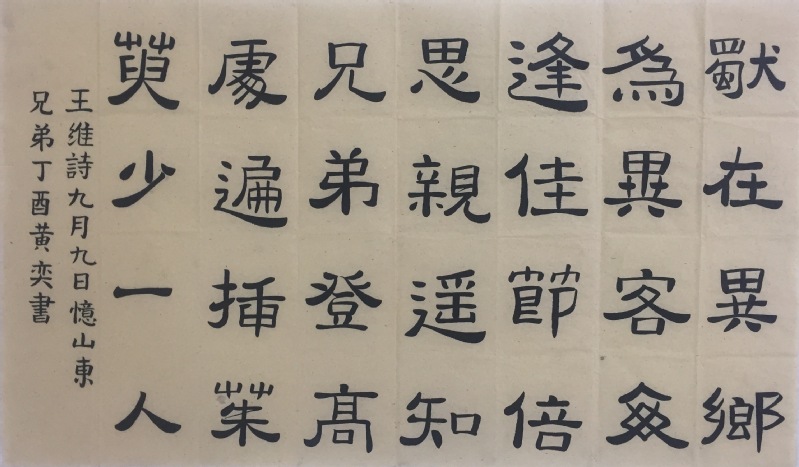 獸在異鄉
爲異客每
逢佳節倍
思親遥知
兄弟登高
處遍插茱
萸少一人
王维詩九月九日憶山東
兄弟丁酉黄奕書